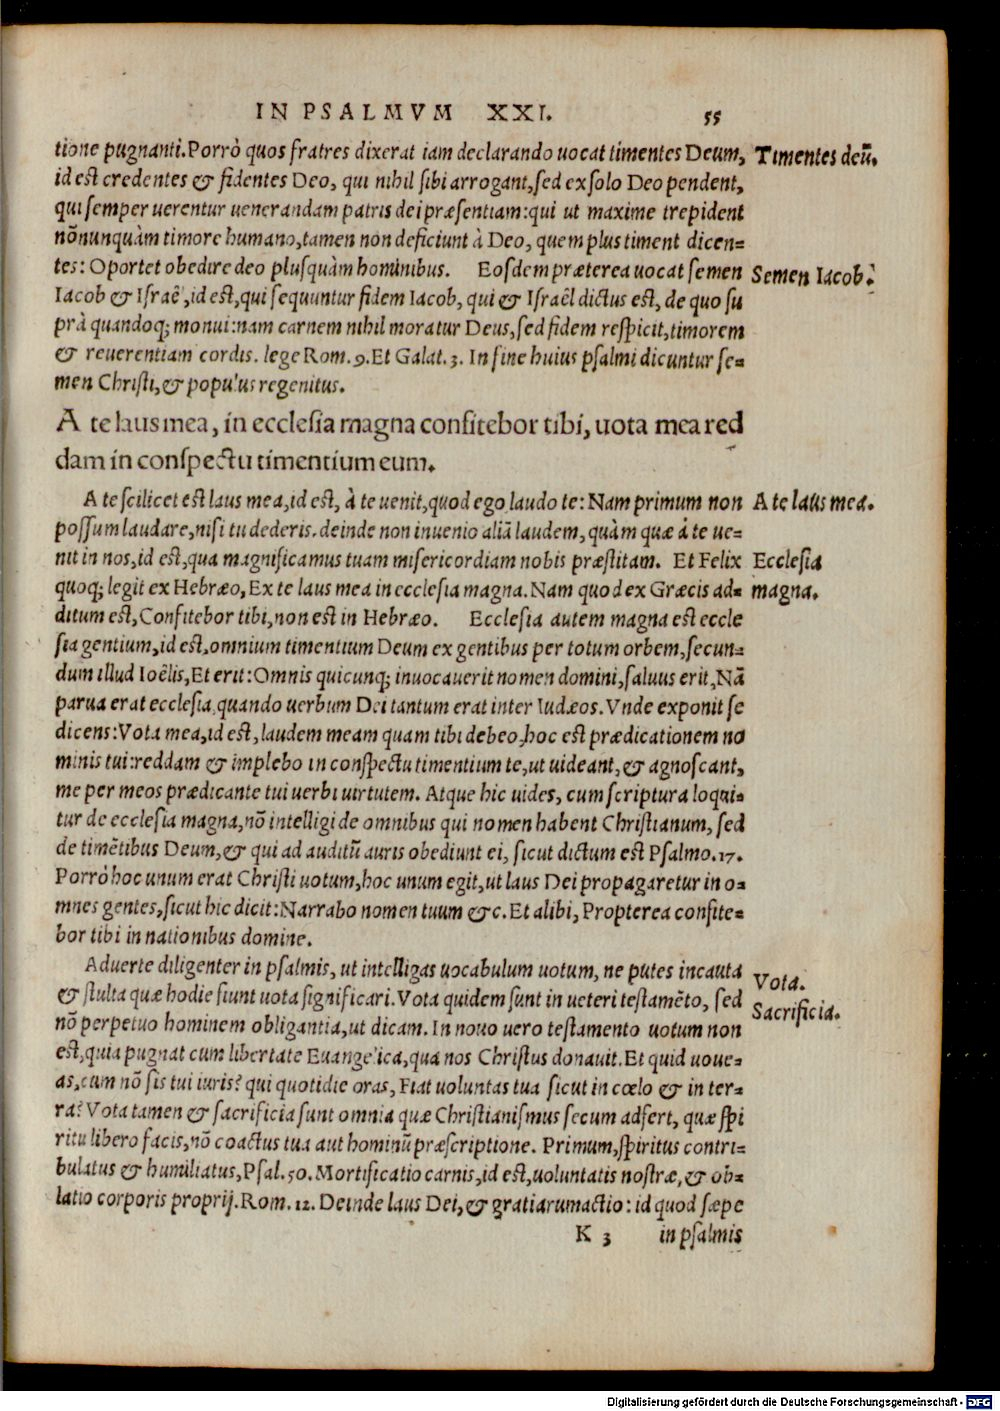 IN PSALMVM XXI. 55
tione pugnanti. Porrò quos fratres dixerat iam declarando uocat timentes Deum,
Timentes deũ.
id est credentes & fidentes Deo, qui nihil sibi arrogant, sed ex solo Deo pendent,
qui semper uerentur uenerandam patris dei præsentiam: qui ut maxime trepident
nõnunquàm timore humano, tamen non deficiunt à Deo, quem plus timent dicen=
tes: Oportet obedire deo plusquàm hominibus. Eosdem præterea uocat semen
Semen Iacob.
Iacob & Israêl, id est, qui sequuntur fidem Iacob, qui & Israêl dictus est, de quo su
prà quandoq; monui: nam carnem nihil moratur Deus, sed fidem respicit, timorem
& reuerentiam cordis. lege Rom. 9. Et Galat. 3. In fine huius psalmi dicuntur se=
men Christi, & populus regenitus.
A te laus mea, in ecclesia magna confitebor tibi, uota mea red
dam in conspectu timentium eum.
A te scilicet est laus mea, id est, à te uenit, quod ego laudo te: Nam primum non
A te laus mea.
possum laudare, nisi tu dederis. deinde non inuenio aliã laudem, quàm quæ á te ue=
nit in nos, id est, qua magnificamus tuam misericordiam nobis præstitam. Et Felix
Ecclesia
quoq; legit ex Hebræo, Ex te laus mea in ecclesia magna. Nam quod ex Græcis ad=
magna.
ditum est, Confitebor tibi, non est in Hebræo. Ecclesia autem magna est eccle
sia gentium, id est, omnium timentium Deum ex gentibus per totum orbem, secun=
dum illud Ioêlis, Et erit: Omnis quicunq; inuocauerit nomen domini, saluus erit, Nã
parua erat ecclesia, quando uerbum Dei tantum erat inter Iudæos. Vnde exponit se
dicens: Vota mea, id est, laudem meam quam tibi debeo, hoc est prædicationem no
minis tui: reddam & implebo in conspectu timentium te, ut uideant, & agnoscant,
me per meos prædicante tui uerbi uirtutem. Atque hic uides, cum scriptura loqui=
tur de ecclesia magna, nõ intelligi de omnibus qui nomen habent Christianum, sed
de timẽtibus Deum, & qui ad auditũ auris obediunt ei, sicut dictum est Psalmo. 17.
Porrò hoc unum erat Christi uotum, hoc unum egit, ut laus Dei propagaretur in o=
mnes gentes, sicut hic dicit: Narrabo nomen tuum &c. Et alibi, Propterea confite=
bor tibi in nationibus domine.
Aduerte diligenter in psalmis, ut intelligas uocabulum uotum, ne putes incauta
Vota.
& stulta quæ hodie fiunt uota significari. Vota quidem sunt in ueteri testamẽto, sed
Sacrificia.
nõ perpetuo hominem obligantia, ut dicam. In nouo uero testamento uotum non
est, quia pugnat cum libertate Euangelica, qua nos Christus donauit. Et quid uoue=
as, cum nõ sis tui iuris? qui quotidie oras, Fiat uoluntas tua sicut in cœlo & in ter=
ra? Vota tamen & sacrificia sunt omnia quæ Christianismus secum adfert, quæ spi
ritu libero facis, nõ coactus tua aut hominũ præscriptione. Primum, spiritus contri=
bulatus & humiliatus, Psal. 50. Mortificatio carnis, id est, uoluntatis nostræ, & ob=
latio corporis proprij. Rom. 12. Deinde laus Dei, & gratiarumactio: id quod sæpe
K 3 in psalmis
Digitalisierung gefördert durch die Deutsche Forschungsgemeinschaft - DFG